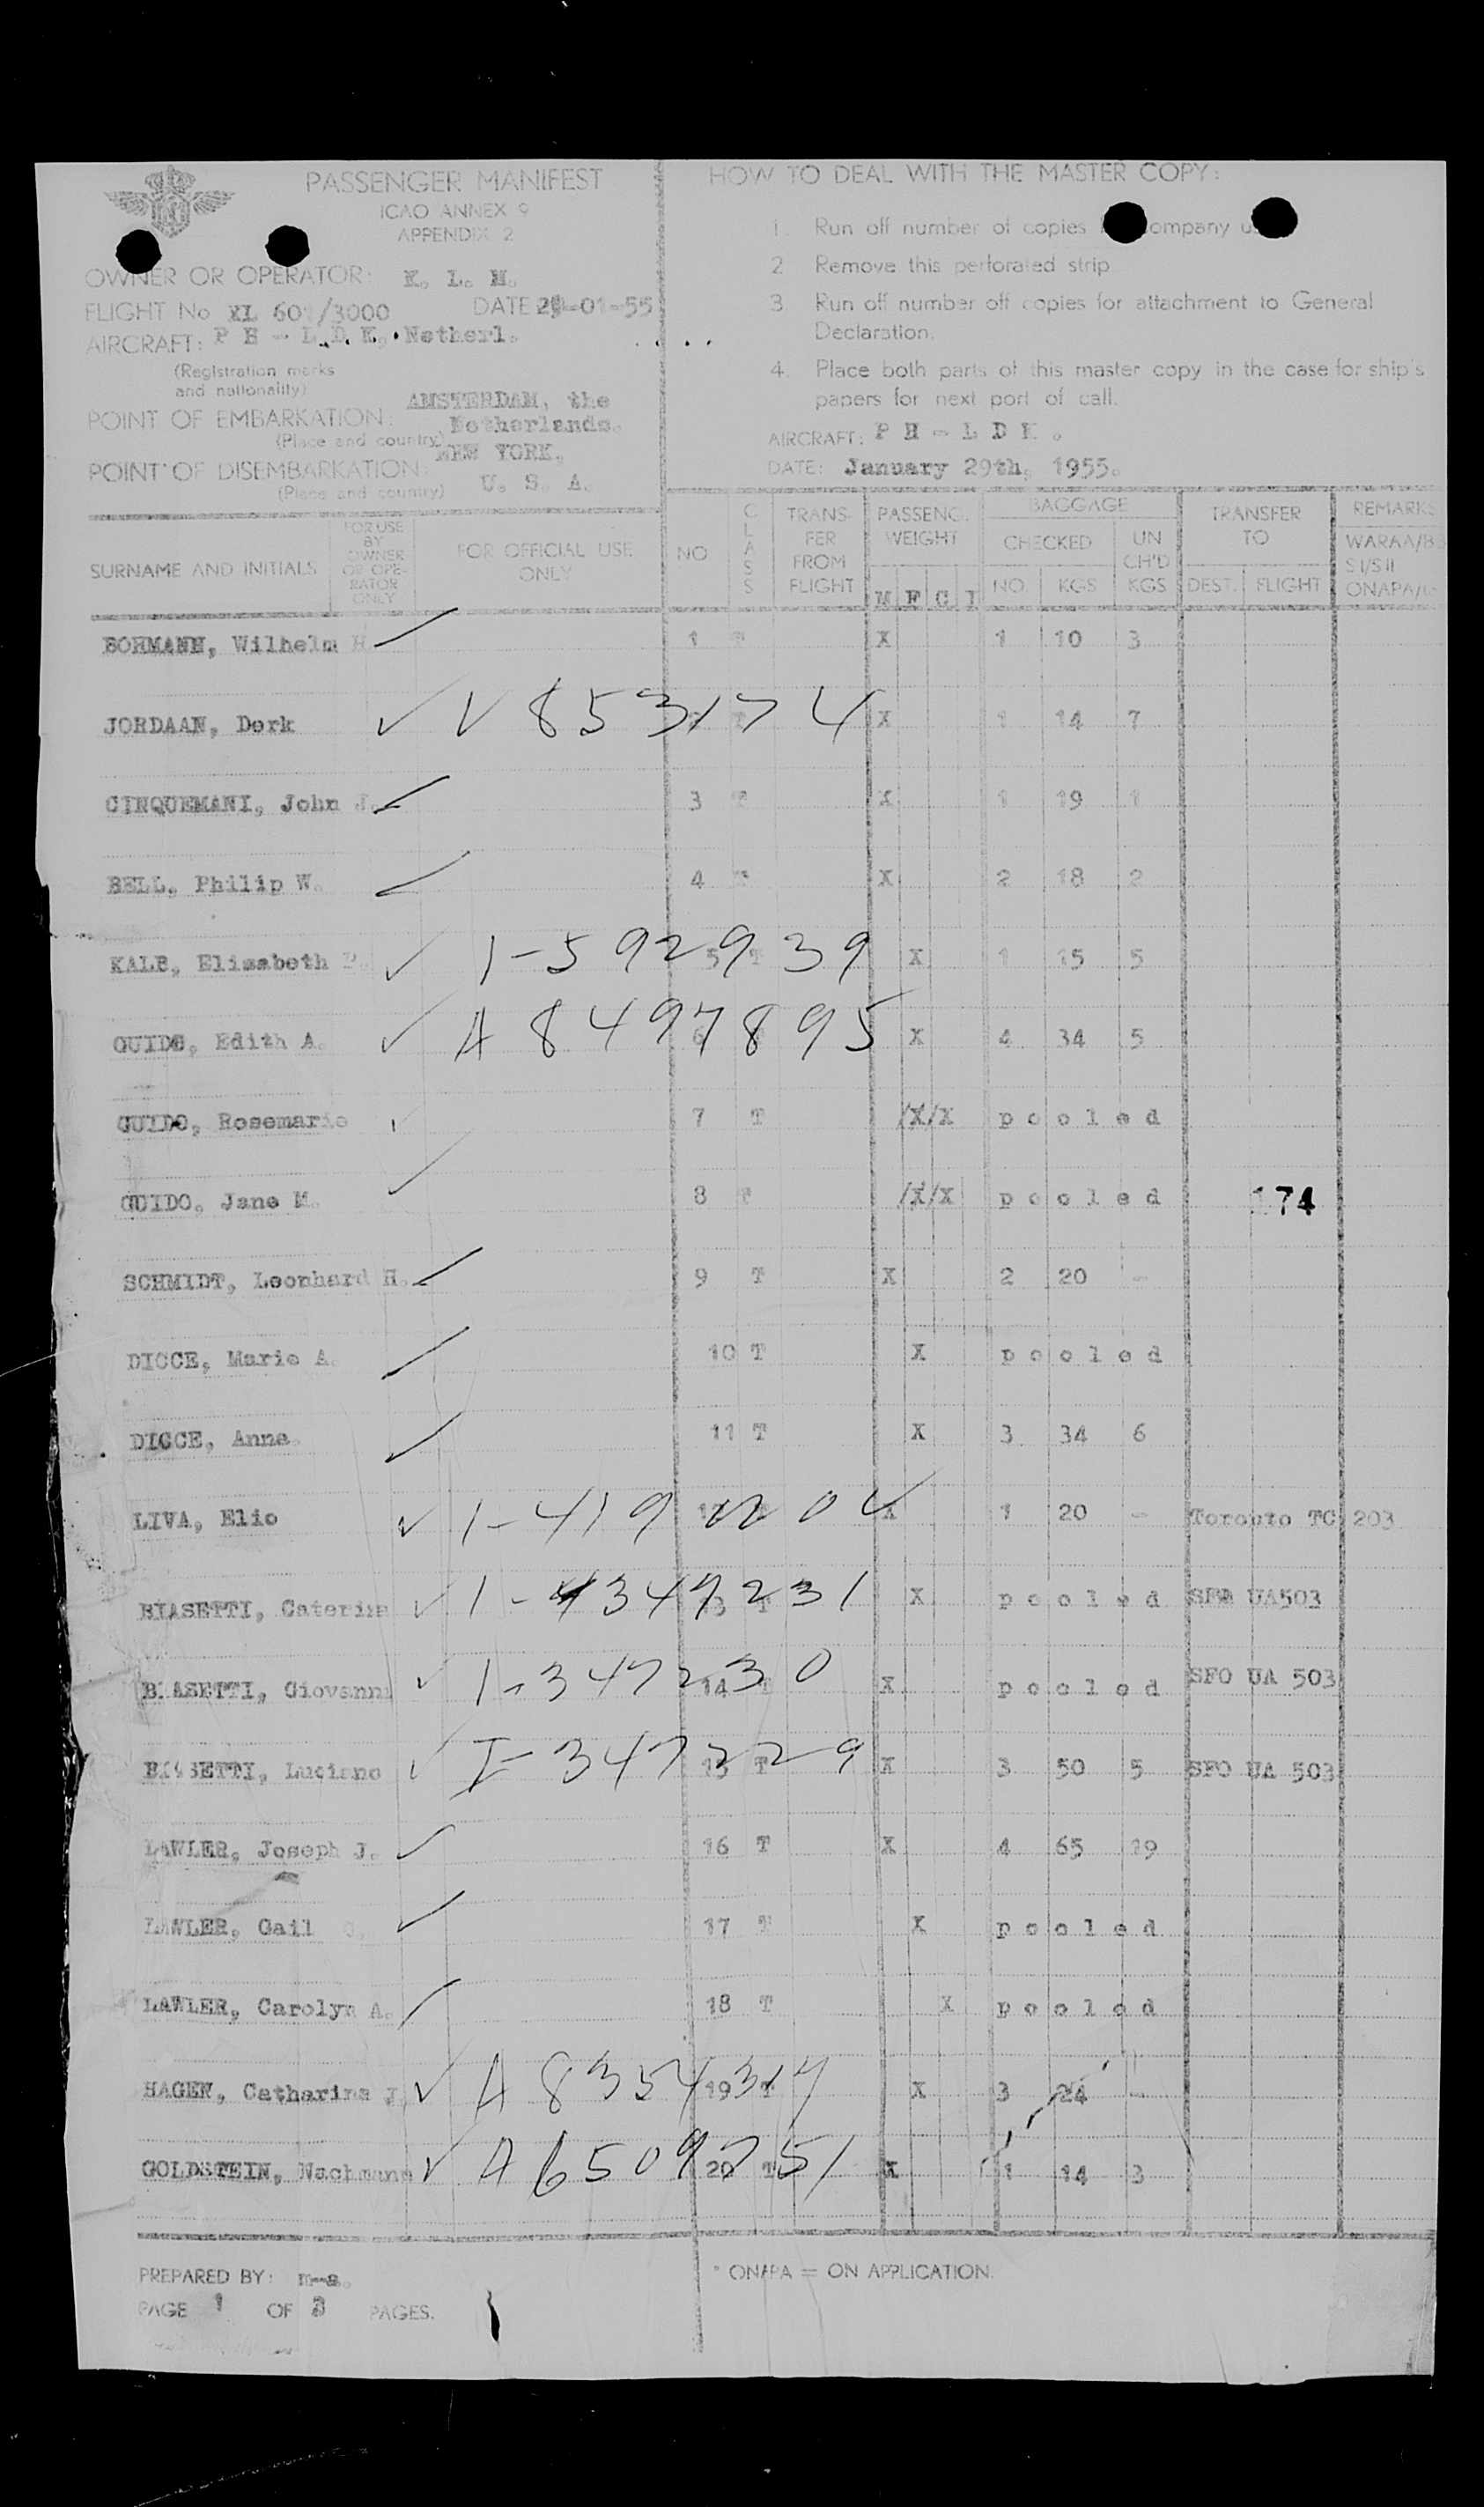 PASSENGER MANIFEST
ICAO ANNEX 9
APPENDIX 2
OWNER OR OPERATOR: K. L. M.
FLIGHT No KL 601/3000 DATE -01-55
AIRCRAFT: P H - L D K. Netherl.
(Registration marks
and nationality)
POINT OF EMBARKATION: AMSTERDAM, the
(Place and country) Netherlands.
POINT OF DISEMBARKATION: NEW YORK.
(Place and country) U. S. A.
HOW TO DEAL WITH THE MASTER COPY:
1. Run off number of copies company
2 Remove this perforated strip
3. Run off number off copies for attachment to General
Declaration.
4. Place both parts of this master copy in the case for ship's
papers for next port of call.
AIRCRAFT: P H - L D K .
DATE: January 29th, 1955.
SURNAME AND INITIALS
FOR USE
BY
OWNER
OR OPE-
RATOR
ONLY
FOR OFFICIAL USE
ONLY
NO
CLASS
TRANS-
FER
FROM
FLIGHT
PASSENG.
WEIGHT
M F C I
BAGGAGE
CHECKED
NO. KGS
UN
CH'D
KGS
TRANSFER
TO
DEST. FLIGHT
REMARKS
WARAA/B
S I/S II
ONAPA/
BOHMANN, Wilhelm H. 1 T X 1 10 3
JORDAAN, Derk V 853174 T X 1 14 7
CINQUEMANI, John J. 3 T X 1 19 1
BELL, Philip W. 4 T X 2 18 2
KALB, Elisabeth 1-592939 5 T X 1 15 5
GUIDO, Edith A. A 8497895 6 X 4 34 5
GUIDO, Rosemarie 7 T /X/X pooled
GUIDO, Jane M. 8 T /X/X pooled 174
SCHMIDT, Leonhard H. 9 T X 2 20 -
DICCE, Marie A. 10 T X pooled
DICCE, Anna 11 T X 3 34 6
LIVA, Elio 1-419 X 1 20 - Toronto TC 203
BIASETTI, Caterina 1-4347231 13 T X pooled SFO UA503
BIASETTI, Giovanni 1-347230 14 T X pooled SFO UA 503
BIASETTI, Luciano I-347229 15 T X 3 50 5 SFO UA 503
LAWLER, Joseph J. 16 T X 4 65 19
LAWLER, Gail 17 T X pooled
LAWLER, Carolyn A. 18 T X pooled
HAGEN, Catharina J. A 8354317 19 T X 3 24 -
GOLDSTEIN, Nachmann A 6509751 20 T X 1 14 3
PREPARED BY: m-s.
PAGE 1 OF 3 PAGES.
* ONAPA = ON APPLICATION.